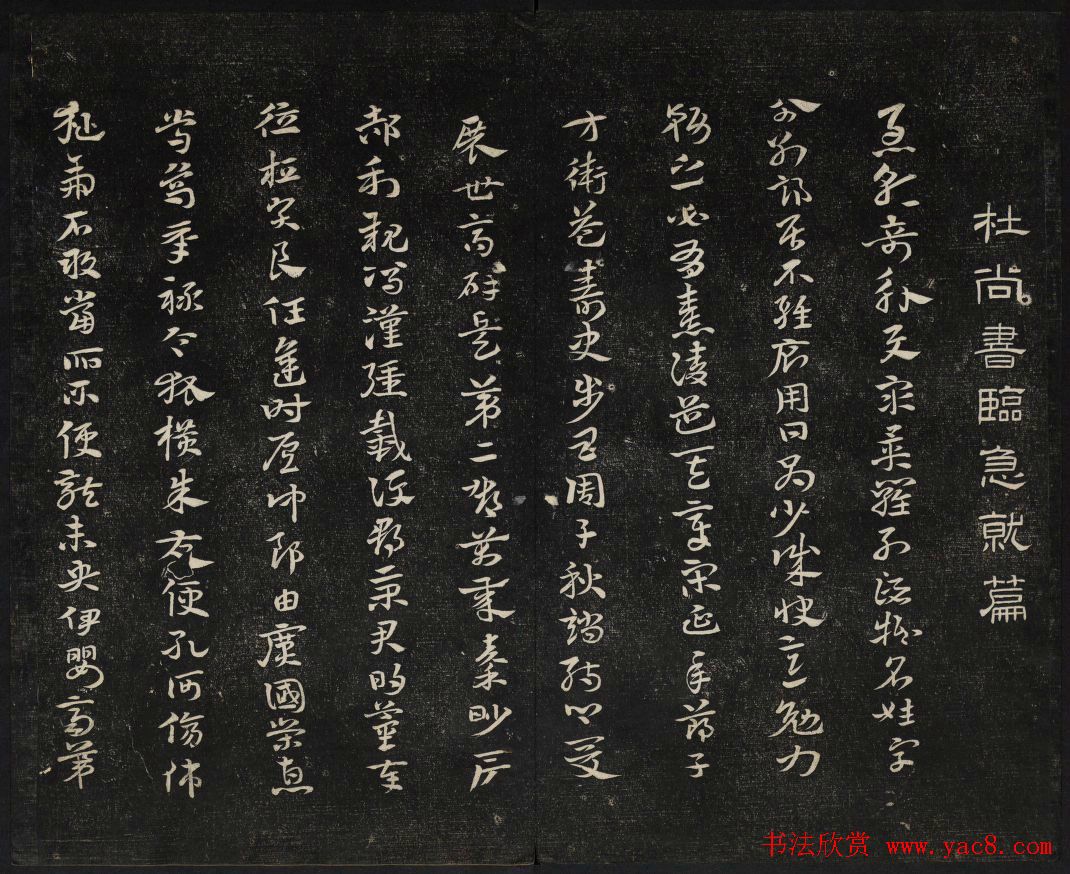 杜尚書臨急就篇
急就奇觚與衆異羅列諸物名姓字
分別部居不雜廁用日約少誠快意勉力
務之必有憙請道其章宋延年鄭子
方衛益壽史步昌周千秋趙孺卿爰
展世高辟兵第二鄧萬歲秦眇房
郝利親馮漢彊戴護郡景君明董奉
德桓賢良任逢時侯仲郎由廣國榮惠
常烏承祿令狐橫朱交便孔何傷師
猛虎石敢當所不侵龍未央伊嬰齊第
书法欣赏 www.yac8.com